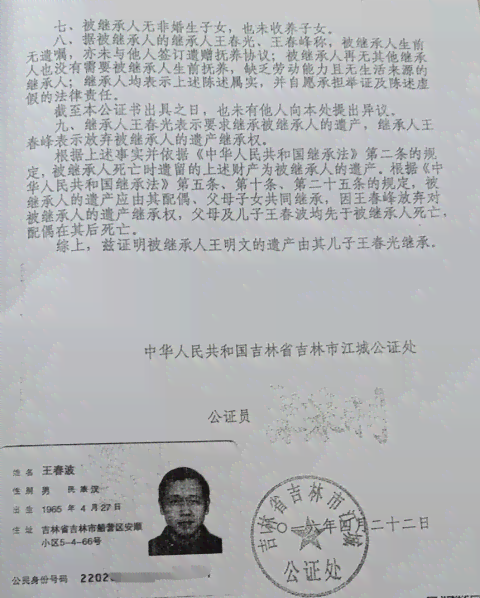 七、被继承人无非婚生子女，也未收养子女。
八、据被继承人的继承人王春光、王春峰称，被继承人生前
无遗嘱，亦未与他人签订遗赠抚养协议；被继承人再无其他继承
人也没有需要被继承人生前抚养，缺乏劳动能力且无生活来源的
继承人；继承人均表示上述陈述属实，并自愿承担举证及陈述虚
假的法律责任。
截至本公证书出具之日，也未有他人向本处提出异议。
九、继承人王春光表示要求继承被继承人的遗产，继承人王
春峰表示放弃被继承人的遗产继承权。
根据上述事实并依据《中华人民共和国继承法》第二条的规
定，被继承人死亡时遗留的上述财产为被继承人的遗产。根据《中
华人民共和国继承法》第五条、第十条、第二十五条的规定，被
继承人的遗产应由其配偶、父母子女共同继承，因王春峰放弃对
被继承人的遗产继承权，父母及儿子王春波均先于被继承人死亡，
配偶在其后死亡。
综上，兹证明被继承人王明文的遗产由其儿子王春光继承。
中华人民共和国吉林省吉林市江城公证处
公证员
姓名 王春波
性别 男 民族 汉
出生 1965 年 4 月 27 日
住址 吉林省吉林市船营区安顺
小区5-4-66号
公民身份号码 2202
年四月二十二日
吉林省吉林市江城
公证处